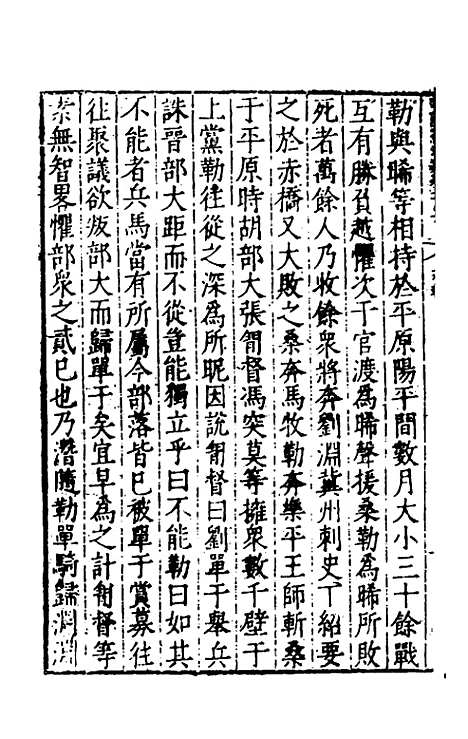 勒與晞等相持於平原陽平間數月大小三十餘戰
互有勝負越懼次于官渡為晞聲援桑勒為晞所敗
死者萬餘人乃收餘衆將奔劉淵冀州刺史丁紹要
之於赤橋又大敗之桑奔馬牧勒奔樂平王師斬桑
于平原時胡部大張㔨督馮突莫等擁衆數千壁于
上黨勒往從之深為所昵因説㔨督曰劉單于舉兵
誅晉部大距而不從豈能獨立乎曰不能勒曰如其
不能者兵馬當有所屬今部落皆已被單于賞募往
往聚議欲叛部大而歸單于矣宜早為之計㔨督等
素無智畧懼部衆之貳已也乃潛隨勒單騎歸淵淵